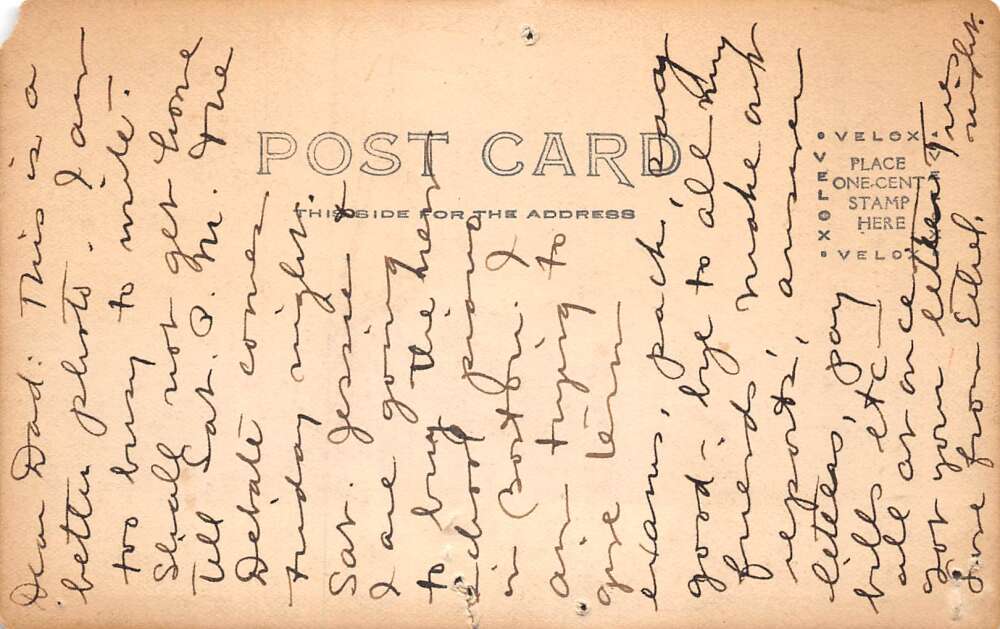 POST CARD
THIS SIDE FOR THE ADDRESS
VELOX
VELOX
PLACE
ONE-CENT
STAMP
HERE
VELOX
Dear Dad: This is a
better photo. I am
too busy to write.
Shall not get home
till Sat. P. M. The
Debate comes
Friday night.
Sat. Jessie &
I are going
to buy the new
school piano
in Boston. I
am trying to
give term
exams, pack, say
good-bye to all my
friends, make out
reports, answer
letters, pay
bills etc—
all at once
Got your letter Tues
night.
Love from Ethel.